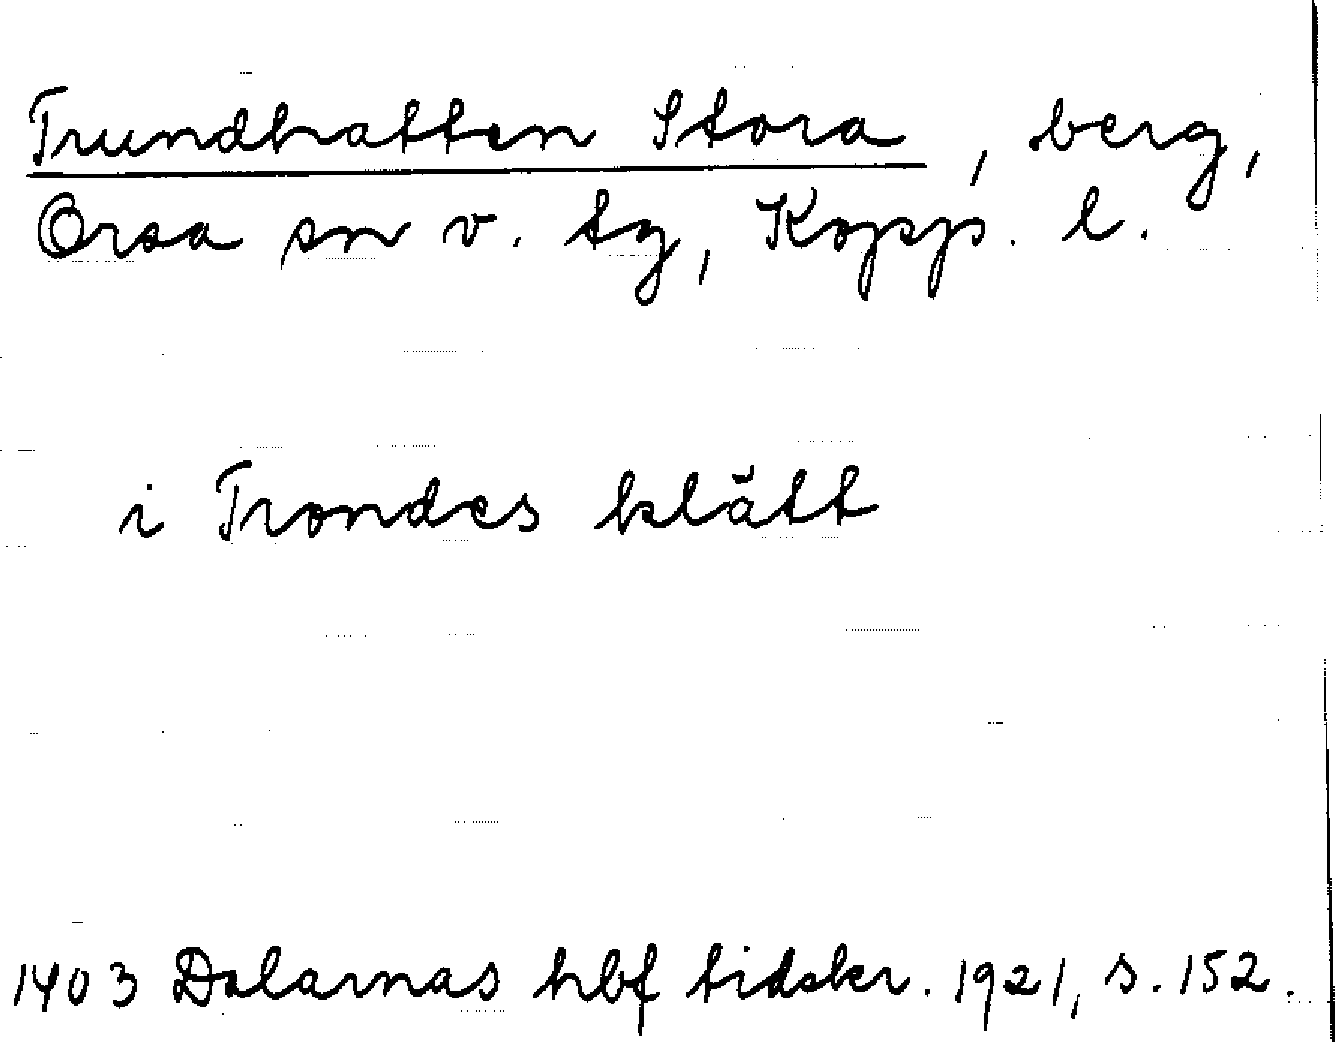 Trundhatten Stora, berg,
Orsa sn v. tg, Kopp. l.
i Trondes klätt
1403 Dalarnas hbf tidskr. 1921, s. 152.